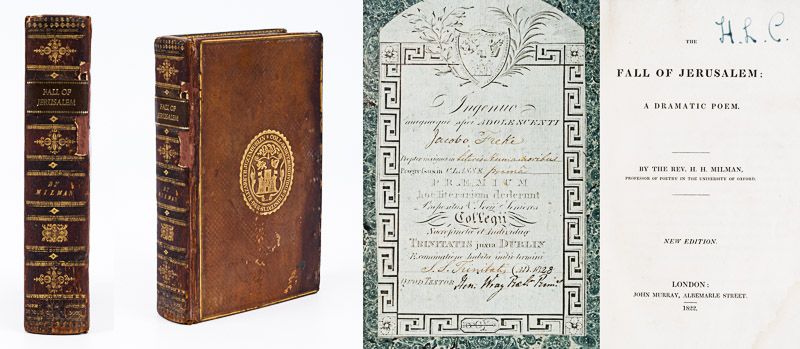 FALL OF
JERUSALEM
BY
MILMAN
FALL OF
JERUSALEM
BY
MILMAN
Ingenuo
magnæque spei ADOLESCENTI
Jacobo Freke
Propter insignes in
Progressus in CLASSE prima
PRÆMIUM
hoc literarium dederunt
Præpositus & Socii Seniores
Collegii
Sacrosanctæ et Individuæ
TRINITATIS juxta DUBLIN
Examinatione habita initio termini
S. S. Trinitatis A.D. 1823
QUOD TESTOR Hen. Wray
H. L. C.
THE
FALL OF JERUSALEM;
A DRAMATIC POEM.
BY THE REV. H. H. MILMAN,
PROFESSOR OF POETRY IN THE UNIVERSITY OF OXFORD.
NEW EDITION.
LONDON:
JOHN MURRAY, ALBEMARLE STREET.
1822.